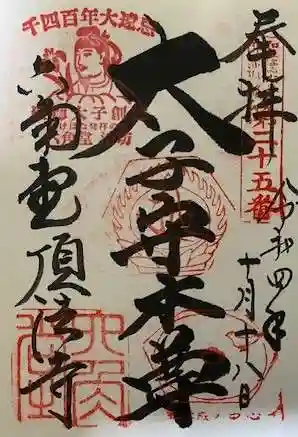 奉拝
令和四年
十月十八日
第二十五番
太子守本尊
六角堂頂法寺
千四百年大遠忌